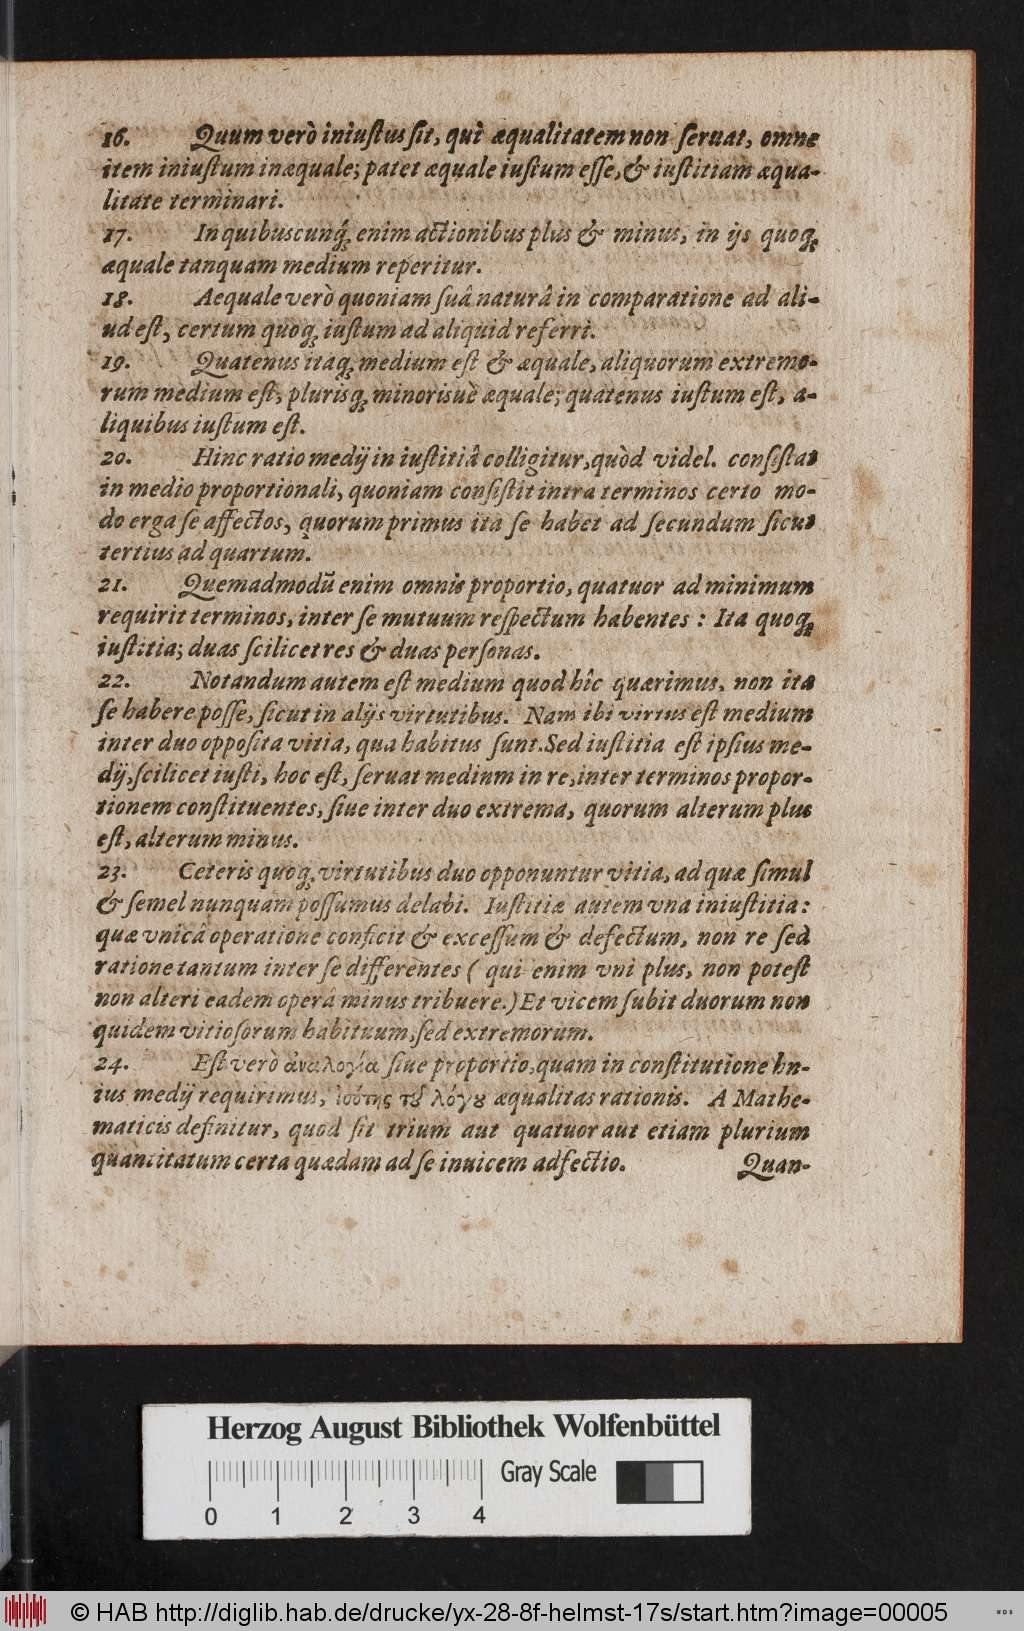 16. Quum verò iniuſtus ſit, qui æqualitatem non ſeruat, omne
item iniuſtum inæquale; patet æquale iuſtum eſſe, & iuſtitiam æqua-
litate terminari.
17. In quibuscunq́ꝫ enim actionibus plus & minus, in ijs quoqꝫ
æquale tanquam medium reperitur.
18. Aequale verò quoniam ſuâ naturâ in comparatione ad ali-
ud eſt, certum quoqꝫ iuſtum ad aliquid referri.
19. Quatenus itaqꝫ medium eſt & æquale, aliquorum extremo-
rum medium eſt, plurisqꝫ minorisuè æquale; quatenus iuſtum eſt, a-
liquibus iuſtum eſt.
20. Hinc ratio medij in iuſtitiâ colligitur, quòd videl. conſiſtat
in medio proportionali, quoniam conſiſtit intra terminos certo mo-
do erga ſe affectos, quorum primus ita ſe habet ad ſecundum ſicut
tertius ad quartum.
21. Quemadmodū enim omnis proportio, quatuor ad minimum
requirit terminos, inter ſe mutuum reſpectum habentes : Ita quoqꝫ
iuſtitia; duas ſcilicet res & duas perſonas.
22. Notandum autem eſt medium quod hîc quærimus, non ita
ſe habere poſſe, ſicut in alijs virtutibus. Nam ibi virtus eſt medium
inter duo oppoſita vitia, qua habitus ſunt. Sed iuſtitia eſt ipſius me-
dij, ſcilicet iuſti, hoc eſt, ſeruat medium in re, inter terminos propor-
tionem conſtituentes, ſiue inter duo extrema, quorum alterum plus
eſt, alterum minus.
23. Ceteris quoqꝫ virtutibus duo opponuntur vitia, ad quæ ſimul
& ſemel nunquam poſſumus delabi. Iuſtitiæ autem vna iniuſtitia:
quæ vnicâ operatione conficit & exceſſum & defectum, non re ſed
ratione tantum inter ſe differentes ( qui enim vni plus, non poteſt
non alteri eadem operâ minus tribuere.) Et vicem ſubit duorum non
quidem vitioſorum habituum, ſed extremorum.
24. Eſt verò ἀναλογία ſiue proportio, quam in conſtitutione hu-
ius medij requirimus, ἰσότης τȣ͂ λόγȣ æqualitas rationis. A Mathe-
maticis definitur, quod ſit trium aut quatuor aut etiam plurium
quantitatum certa quædam ad ſe inuicem adfectio. Quan-
Herzog August Bibliothek Wolfenbüttel
Gray Scale
0 1 2 3 4
© HAB http://diglib.hab.de/drucke/yx-28-8f-helmst-17s/start.htm?image=00005